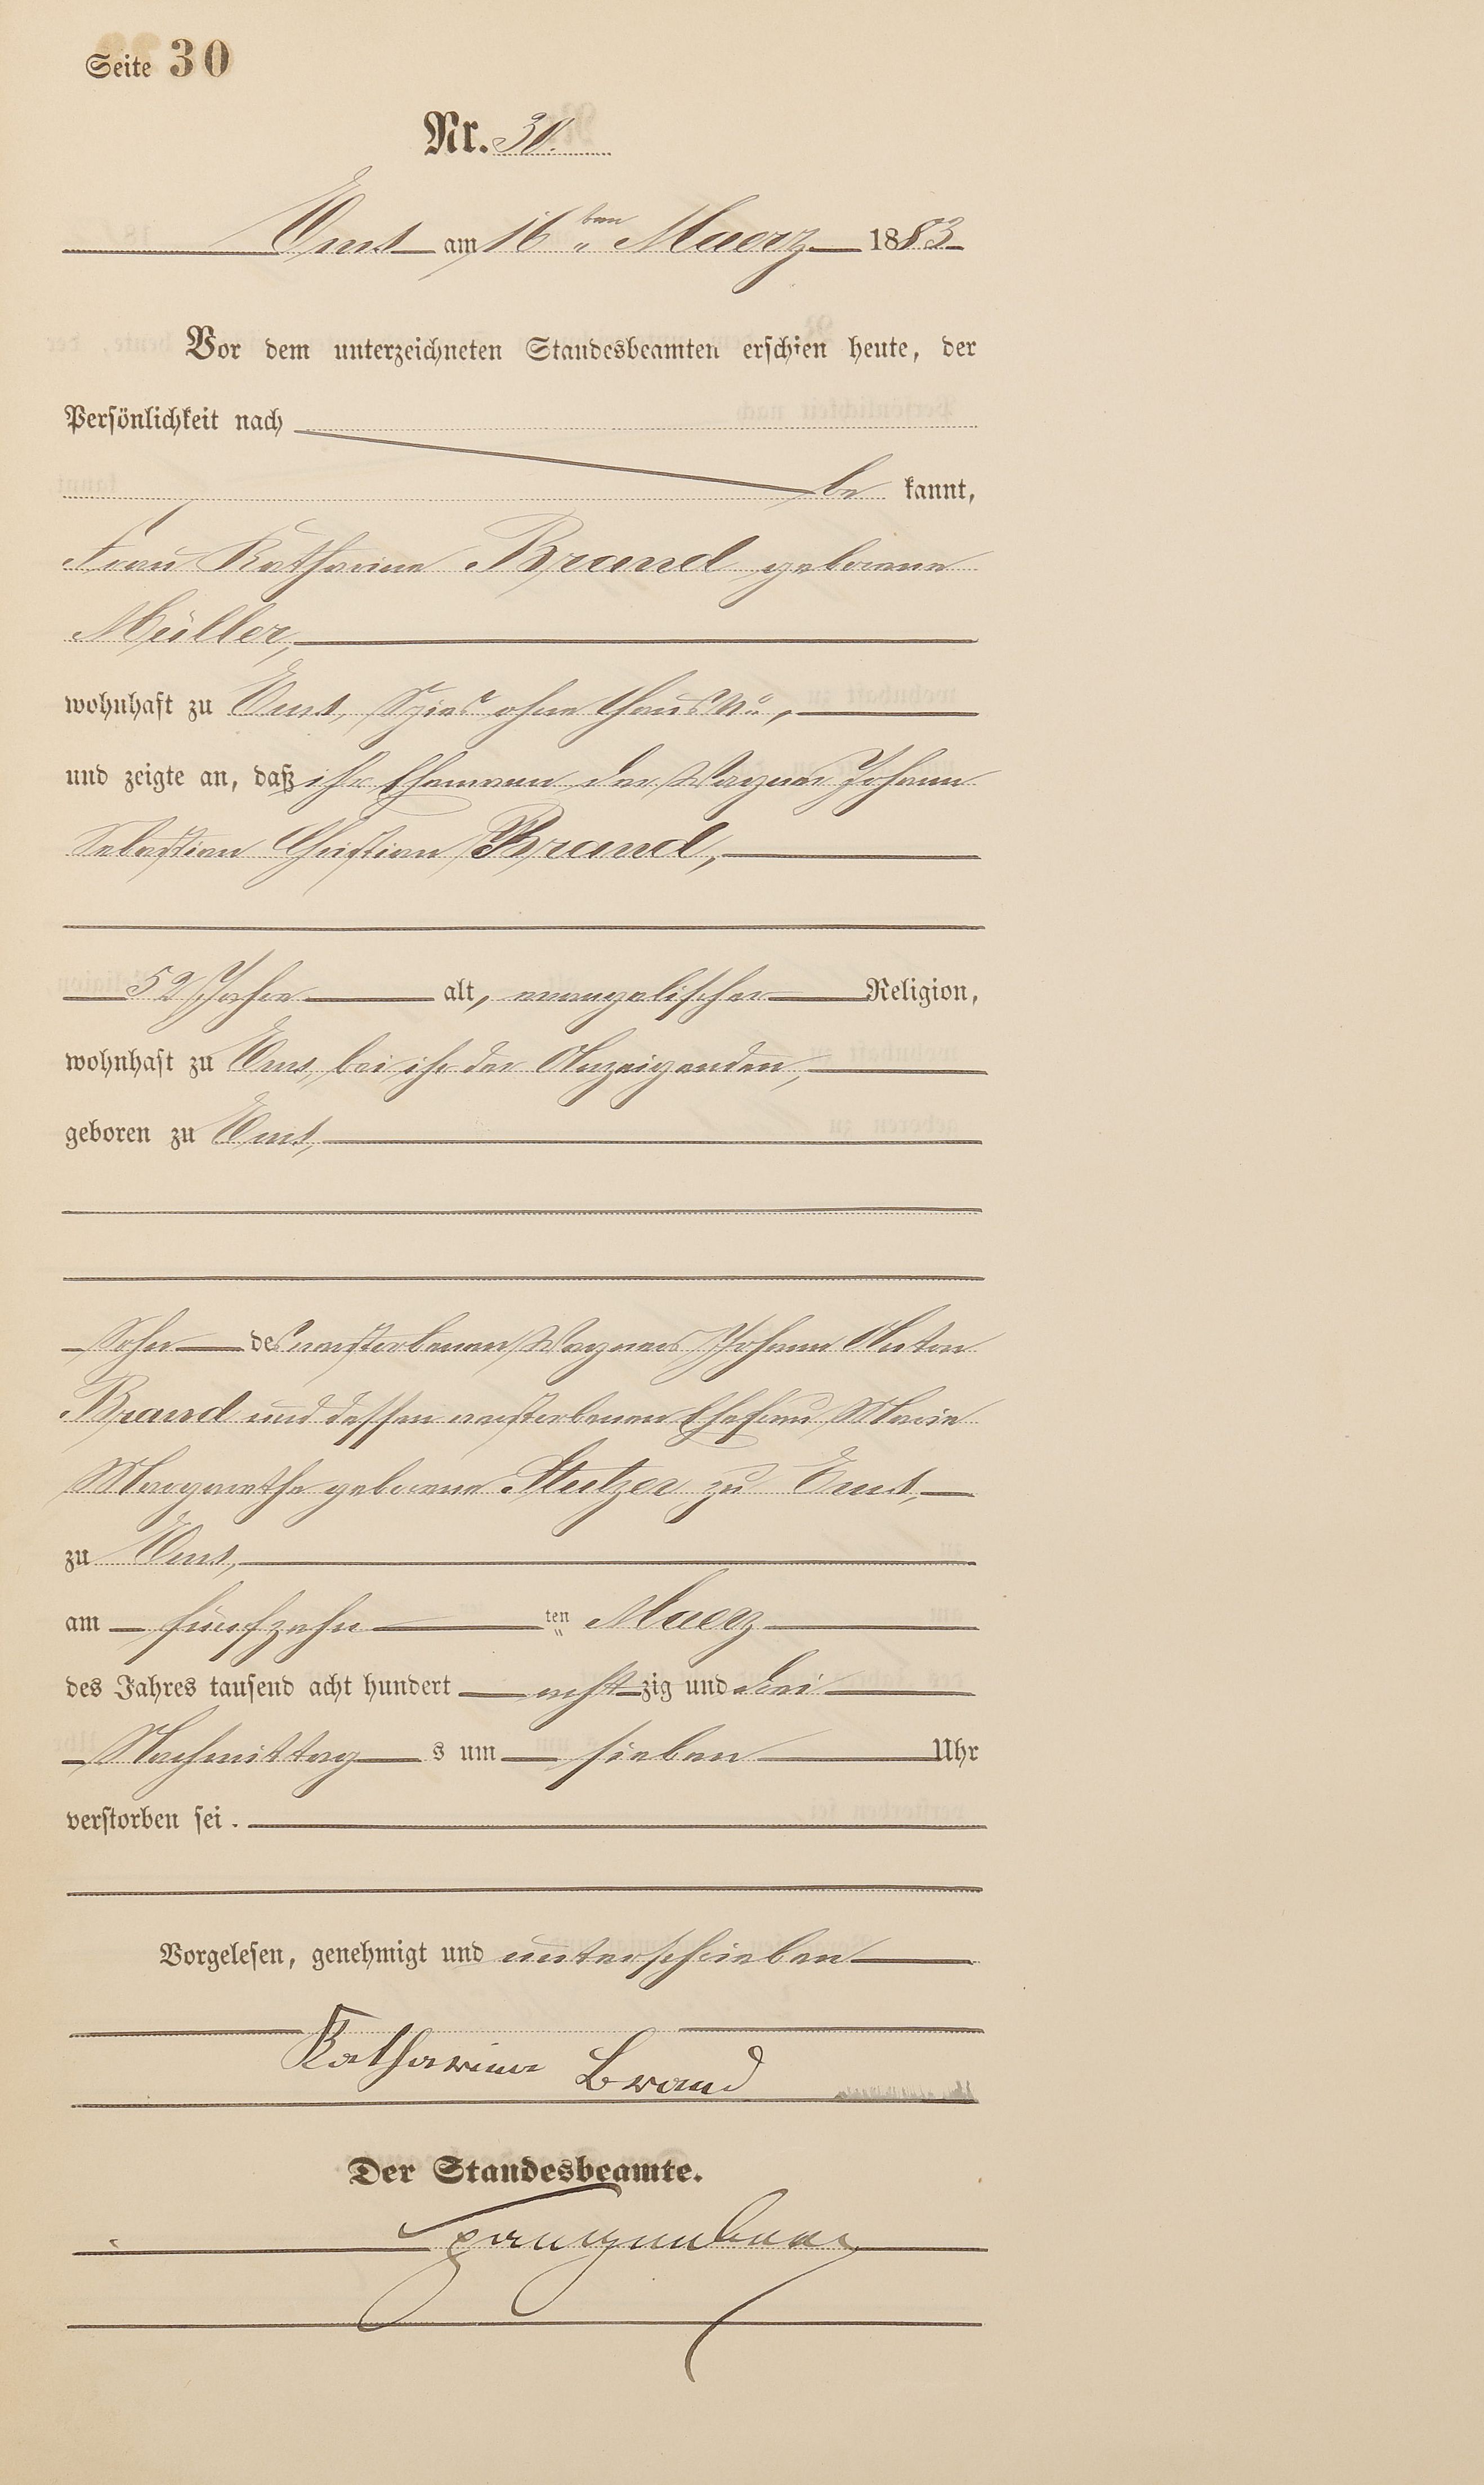 Seite 30
Nr. 30.
Ems am 16ten Maerz 1883
Vor dem unterzeichneten Standesbeamten erschien heute, der
Persönlichkeit nach
be kannt,
Frau Katharina Brand geborene
Müller,
wohnhaft zu Ems, Spies ohne Haus No,
und zeigte an, daß ihr Ehemann der Wagner Johann
Sebastian Christian Brand,
52 Jahre alt, evangelischer Religion,
wohnhaft zu Ems, bei ihr der Anzeigenden,
geboren zu Ems,
Sohn des verstorbenen Wagners Johann Anton
Brand und dessen verstorbenen Ehefrau Marie
Margarethe geborene Stutzer zu Ems,
zu Ems,
am fünfzehn ten Maerz
des Jahres tausend acht hundert acht zig und drei
Nachmittag s um sieben Uhr
verstorben sei.
Vorgelesen, genehmigt und unterschrieben
Katharina Brand
Der Standesbeamte.